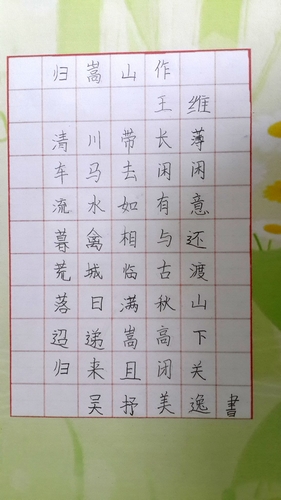 归嵩山作
王维
清川带长薄
车马去闲闲
流水如有意
暮禽相与还
荒城临古渡
落日满秋山
迢递嵩高下
归来且闭关
吴抒美逸書